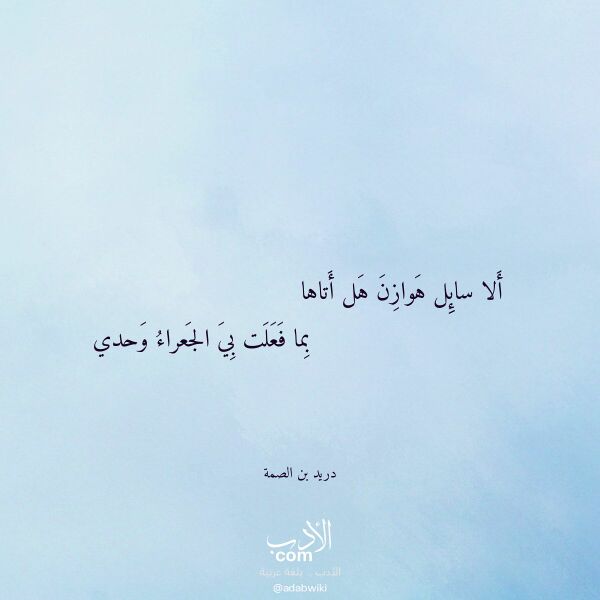 أَلا سائِل هَوازِنَ هَل أَتاها
بِما فَعَلَت بِيَ الجَعراءُ وَحدي
دريد بن الصمة
الأدب
com
الأدب .. بلغة عربية
@adabwiki